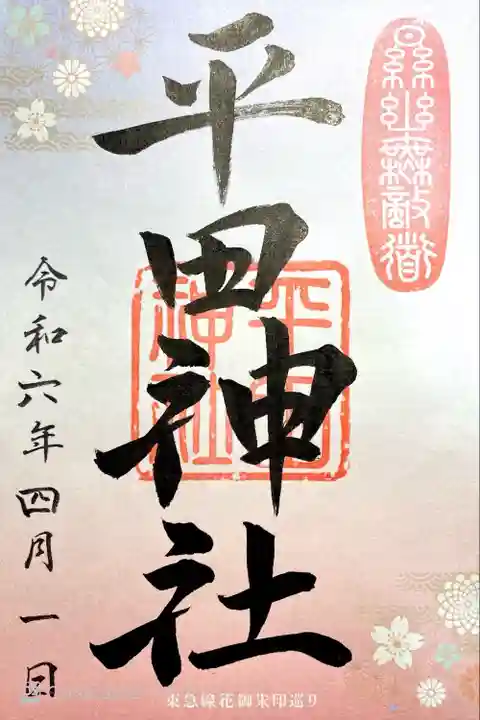 㬎幽無敵道
平田神社
平田
神社
令和六年四月一日
東急線花御朱印巡り